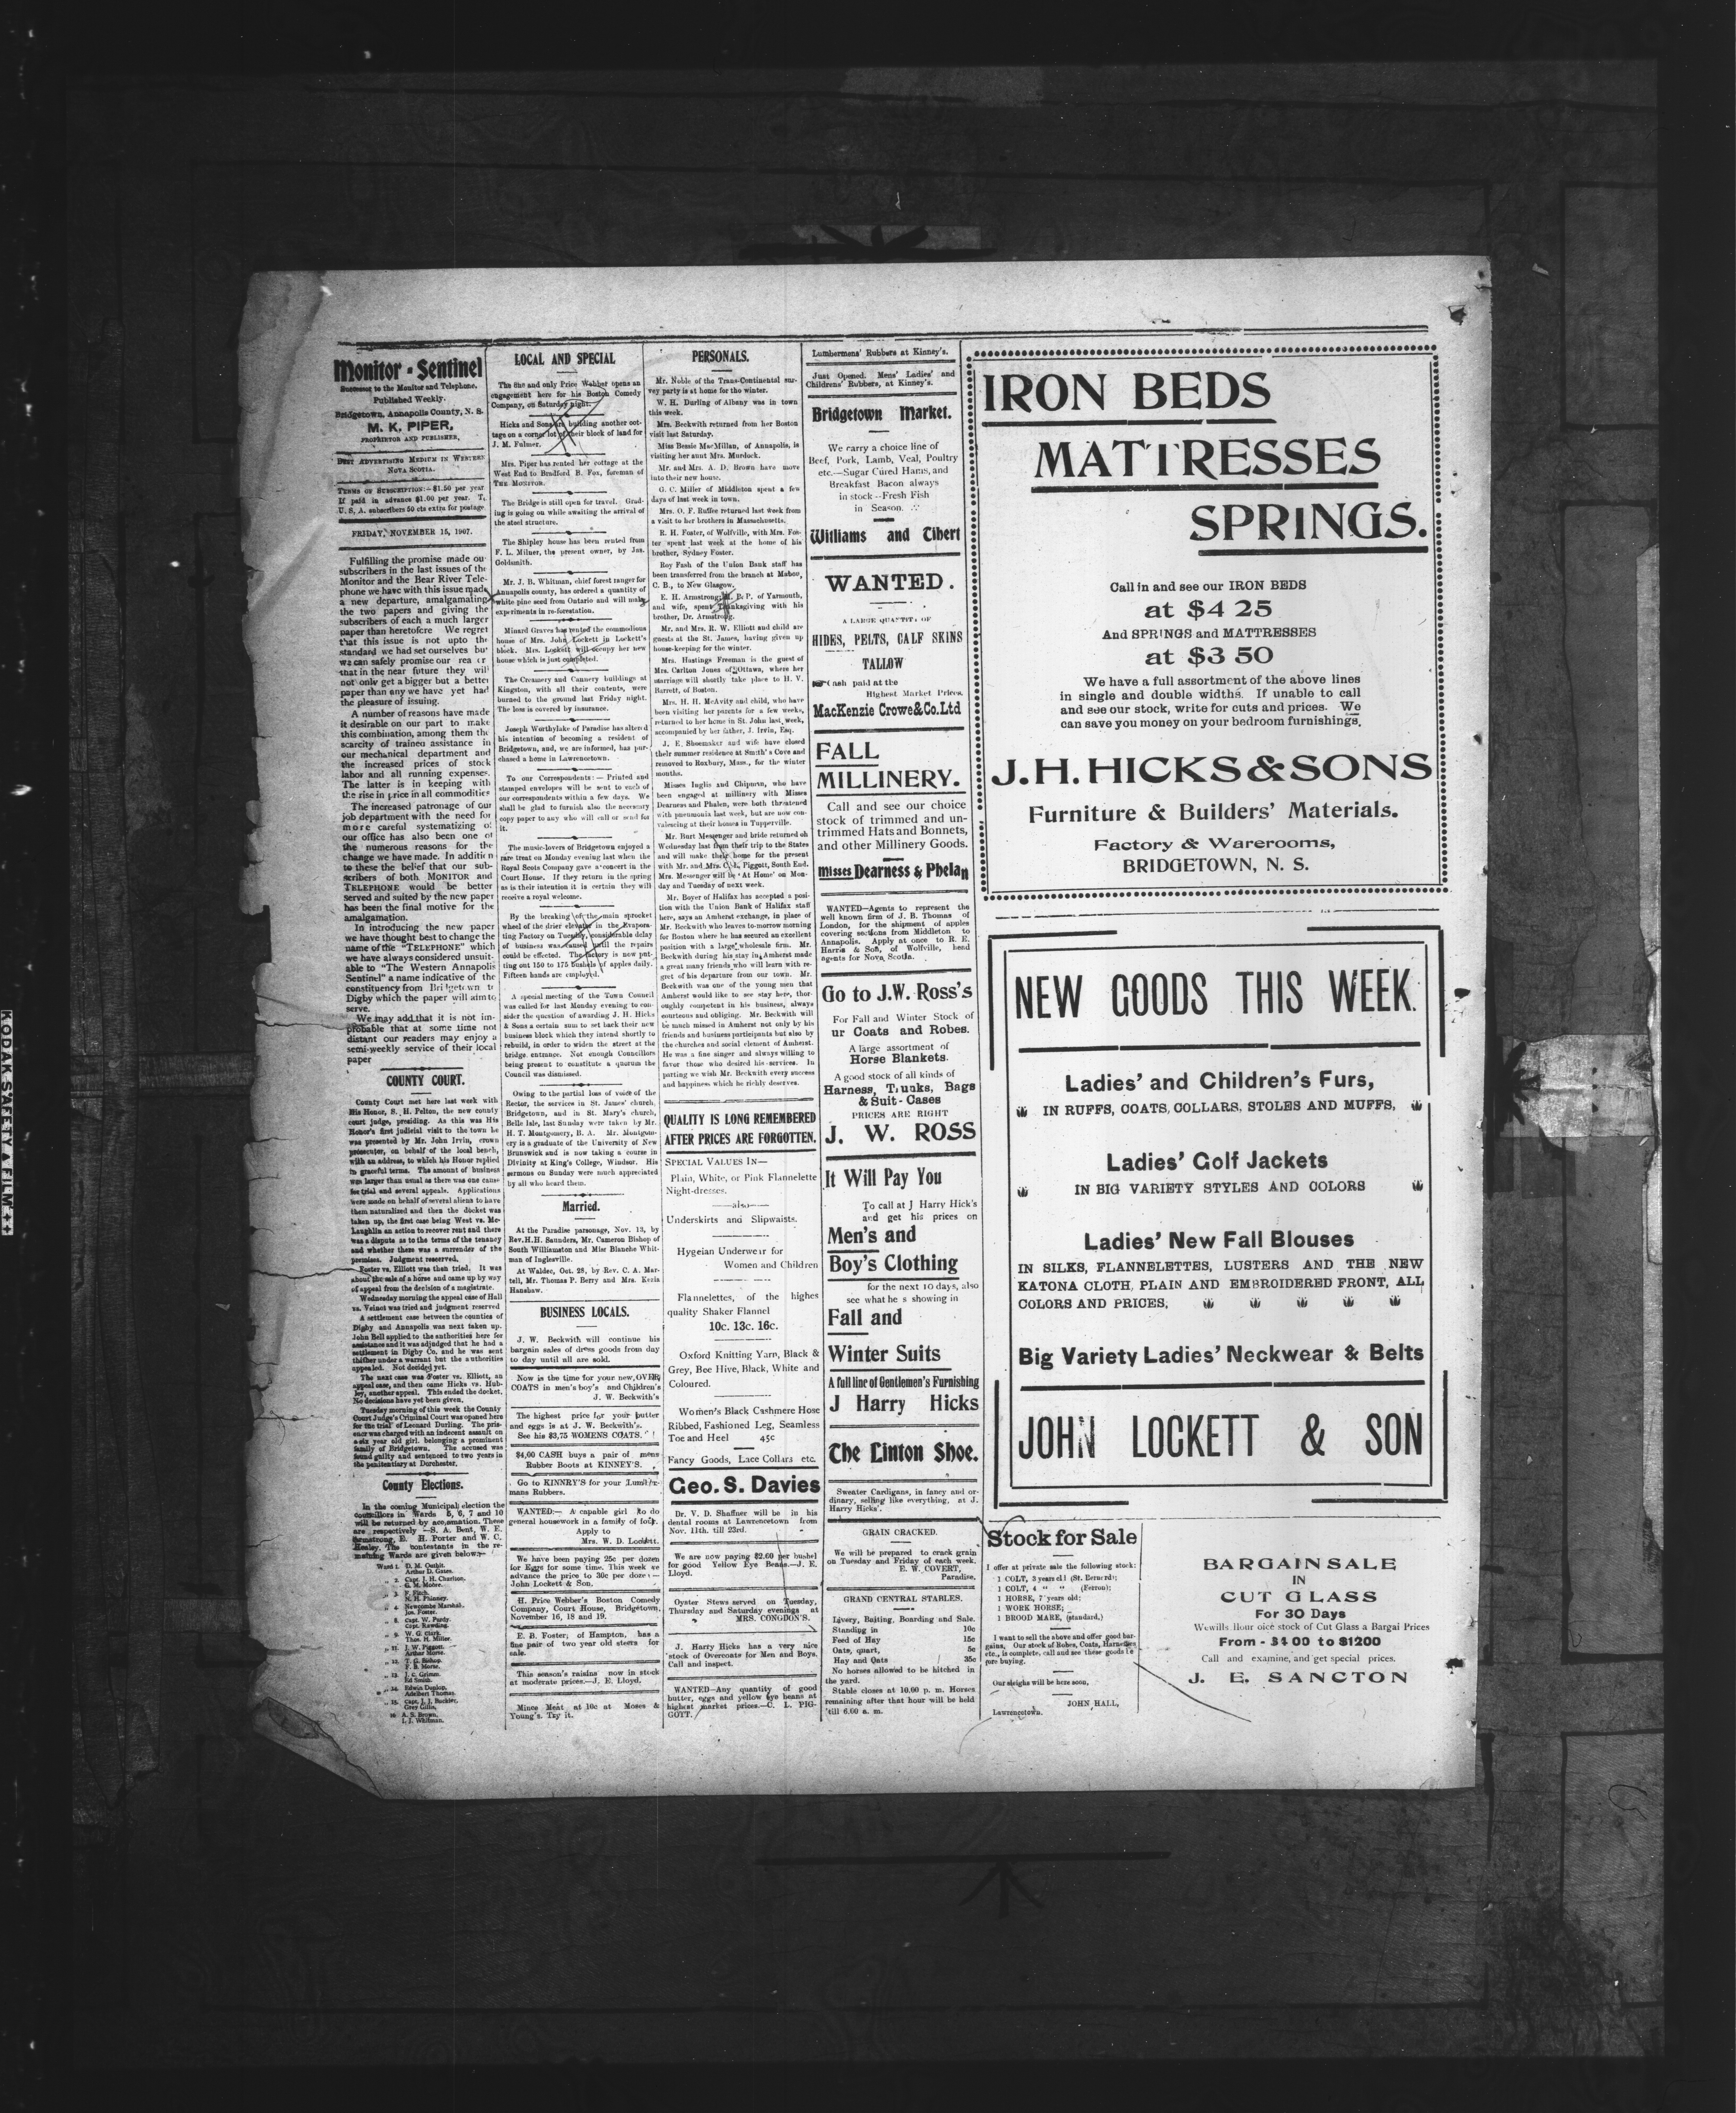 Monitor - Sentinel
Successor to the Monitor and Telephone.
Published Weekly.
Bridgetown, Annapolis County, N. S.
M. K. PIPER,
PROPRIETOR AND PUBLISHER,
BEST ADVERTISING MEDIUM IN WESTERN
NOVA SCOTIA.
TERMS OF SUBSCRIPTION:—$1.50 per year
If paid in advance $1.00 per year. T.
U. S. A. subscribers 50 cts extra for postage
FRIDAY, NOVEMBER 15, 1907.
Fulfilling the promise made ou
subscribers in the last issues of the
Monitor and the Bear River Tele-
phone we have with this issue made
a new departure, amalgamating
the two papers and giving the
subscribers of each a much larger
paper than heretofore We regret
that this issue is not upto the
standard we had set ourselves bu
we can safely promise our rea er
that in the near future they will
not only get a bigger but a better
paper than any we have yet had
the pleasure of issuing.
A number of reasons have made
it desirable on our part to make
this combination, among them the
scarcity of trained assistance in
our mechanical department and
the increased prices of stock
labor and all running expenses.
The latter is in keeping with
the rise in price in all commodities
The increased patronage of our
job department with the need for
more careful systematizing of
our office has also been one of
the numerous reasons for the
change we have made. In additin
to these the belief that our sub-
scribers of both MONITOR and
TELEPHONE would be better
served and suited by the new paper
has been the final motive for the
amalgamation.
In introducing the new paper
we have thought best to change the
name of the "TELEPHONE" which
we have always considered unsuit-
able to "The Western Annapolis
Sentinel" a name indicative of the
constituency from Bridgetown to
Digby which the paper will aim to
serve.
We may add that it is not im-
probable that at some time not
distant our readers may enjoy a
semi-weekly service of their local
paper
COUNTY COURT.
County Court met here last week with
His Honor, S. H. Pelton, the new county
court judge, presiding. As this was His
Honor's first judicial visit to the town he
was presented by Mr. John Irvin, crown
prosecutor, on behalf of the local bench,
with an address, to which his Honor replied
in graceful terms. The amount of business
was larger than usual as there was one cause
for trial and several appeals. Applications
were made on behalf of several aliens to have
them naturalized and then the docket was
taken up, the first case being West vs. Mc-
Laughlin an action to recover rent and there
was a dispute as to the terms of the tenancy
and whether there was a surrender of the
premises. Judgment reserved.
Foster vs. Elliott was then tried. It was
about the sale of a horse and came up by way
of appeal from the decision of a magistrate.
Wednesday morning the appeal case of Hall
vs. Veinot was tried and judgment reserved
A settlement case between the counties of
Digby and Annapolis was next taken up.
John Bell applied to the authorities here for
assistance and it was adjudged that he had a
settlement in Digby Co. and he was sent
thither under a warrant but the authorities
appealed. Not decided yet.
The next case was Foster vs. Elliott, an
appeal case, and then came Hicks vs. Hub-
ley, another appeal. This ended the docket.
No decisions have yet been given.
Tuesday morning of this week the County
Court Judge's Criminal Court was opened here
for the trial of Leonard Durling. The pris-
oner was charged with an indecent assault on
a six year old girl, belonging a prominent
family of Bridgetown. The accused was
found guilty and sentenced to two years in
the penitentiary at Dorchester.
County Elections.
In the coming Municipal election the
councillors in Wards 5, 6, 7 and 10
will be returned by acclamation. These
are respectively —S. A. Bent, W. E.
Armstrong, E. H. Porter and W. C.
Healey. The contestants in the re-
maining Wards are given below:—
Ward 1. D. M. Outhit.
Arthur D. Gates.
" 2. Capt. J. H. Charlton.
G. M. Moore.
" 3. F. Fitch.
N. H. Phinney.
" 4. Newcombe Marshall.
Jos. Foster.
" 8. Capt. W. Purdy.
Capt. Rawding.
" 9. W. G. Clark.
Thos. H. Miller.
" 11. J. W. Piggott.
Arthur Morse.
" 12. T. G. Bishop.
F. B. Morse.
" 13. J. C. Grimm.
Ed Smith.
" 14. Edwin Dunlop.
Adelbert Thomas.
" 15. Capt. J. J. Buckler.
" 16. A. S. Brown.
I. J. Whitman.
LOCAL AND SPECIAL
The one and only Price Webber opens an
engagement here for his Boston Comedy
Company, on Saturday night.
Hicks and Sons are building another cot-
tage on a corner lot of their block of land for
J. M. Fulmer.
Mrs. Piper has rented her cottage at the
West End to Bradford B. Fox, foreman of
THE MONITOR.
The Bridge is still open for travel. Grad-
ing is going on while awaiting the arrival of
the steel structure.
The Shipley house has been rented from
F. L. Milner, the present owner, by Jas.
Goldsmith.
Mr. J. B. Whitman, chief forest ranger for
Annapolis county, has ordered a quantity of
white pine seed from Ontario and will make
experiments in re-forestation.
Minard Graves has rented the commodious
house of Mrs. John Lockett in Lockett's
block. Mrs. Lockett will occupy her new
house which is just completed.
The Creamery and Cannery buildings at
Kingston, with all their contents, were
burned to the ground last Friday night.
The loss is covered by insurance.
Joseph Worthylake of Paradise has altered
his intention of becoming a resident of
Bridgetown, and, we are informed, has pur-
chased a home in Lawrencetown.
To our Correspondents: — Printed and
stamped envelopes will be sent to each of
our correspondents within a few days. We
shall be glad to furnish also the necessary
copy paper to any who will call or send for
it.
The music-lovers of Bridgetown enjoyed a
rare treat on Monday evening last when the
Royal Scots Company gave a concert in the
Court House. If they return in the spring
as is their intention it is certain they will
receive a royal welcome.
By the breaking of the main sprocket
wheel of the drier elevator in the Evapora-
ting Factory on Tuesday, considerable delay
of business was caused until the repairs
could be effected. The factory is now put-
ting out 150 to 175 bushels of apples daily.
Fifteen hands are employed.
A special meeting of the Town Council
was called for last Monday evening to con-
sider the question of awarding J. H. Hicks
& Sons a certain sum to set back their new
business block which they intend shortly to
rebuild, in order to widen the street at the
bridge entrance. Not enough Councillors
being present to constitute a quorum the
Council was dismissed.
Owing to the partial loss of voice of the
Rector, the services in St. James' church,
Bridgetown, and in St. Mary's church,
Belle Isle, last Sunday were taken by Mr.
H. T. Montgomery, B. A. Mr. Montgom-
ery is a graduate of the University of New
Brunswick and is now taking a course in
Divinity at King's College, Windsor. His
sermons on Sunday were much appreciated
by all who heard them.
Married.
At the Paradise parsonage, Nov. 13, by
Rev.H.H. Saunders, Mr. Cameron Bishop of
South Williamston and Miss Blanche Whit-
man of Inglesville.
At Waldec, Oct. 28, by Rev. C. A. Mar-
tell, Mr. Thomas P. Berry and Mrs. Kezia
Hanshaw.
BUSINESS LOCALS.
J. W. Beckwith will continue his
bargain sales of dress goods from day
to day until all are sold.
Now is the time for your new OVER
COATS in men's boy's and Children's
J. W. Beckwith's
The highest price for your butter
and eggs is at J. W. Beckwith's.
See his $3,75 WOMENS COATS.
$4,00 CASH buys a pair of mens
Rubber Boots at KINNEY'S.
Go to KINNRY'S for your Lumber-
mans Rubbers.
WANTED— A capable girl to do
general housework in a family of four.
Apply to
Mrs. W. D. Lockett.
We have been paying 25c per dozen
for Eggs for some time. This week we
advance the price to 30c per doze:—
John Lockett & Son.
H. Price Webber's Boston Comedy
Company, Court House, Bridgetown,
November 16, 18 and 19.
E. B. Foster, of Hampton, has a
fine pair of two year old steers for
sale.
This season's raisins now in stock
at moderate prices.—J. E. Lloyd.
Mince Meat at 10c at Moses &
Young's. Try it.
PERSONALS.
Mr. Noble of the Trans-Continental sur-
vey party is at home for the winter.
W. H. Durling of Albany was in town
this week.
Mrs. Beckwith returned from her Boston
visit last Saturday.
Miss Bessie MacMillan, of Annapolis, is
visiting her aunt Mrs. Murdock.
Mr. and Mrs. A. D. Brown have move
into their new house.
G. C. Miller of Middleton spent a few
days of last week in town.
Mrs. O. F. Ruffee returned last week from
a visit to her brothers in Massachusetts.
E. H. Foster, of Wolfville, with Mrs. Fos-
ter spent last week at the home of his
brother, Sydney Foster.
Roy Fash of the Union Bank staff has
been transferred from the branch at Mabou,
C. B., to New Glasgow.
E. H. Armstrong, M. P. P. of Yarmouth,
and wife, spent Thanksgiving with his
brother, Dr. Armstrong.
Mr. and Mrs. R. W. Elliott and child are
guests at the St. James, having given up
house-keeping for the winter.
Mrs. Hastings Freeman is the guest of
Mrs. Carlton Jones of Ottawa, where her
marriage will shortly take place to H. V.
Barrett, of Boston.
Mrs. H. H. McAvity and child, who have
been visiting her parents for a few weeks,
returned to her home in St. John last week,
accompanied by her father, J. Irvin, Esq.
J. E. Shoemaker and wife have closed
their summer residence at Smith's Cove and
removed to Roxbury, Mass., for the winter
months.
Misses Inglis and Chipman, who have
been engaged at millinery with Misses
Dearness and Phalen, were both threatened
with pneumonia last week, but are now con-
valescing at their homes in Tupperville.
Mr. Burt Messenger and bride returned on
Wednesday last from their trip to the States
and will make their home for the present
with Mr. and Mrs. C. L. Piggott, South End.
Mrs. Messenger will be 'At Home' on Mon-
day and Tuesday of next week.
Mr. Boyer of Halifax has accepted a posi-
tion with the Union Bank of Halifax staff
here, says an Amherst exchange, in place of
Mr. Beckwith who leaves to-morrow morning
for Boston where he has secured an excellent
position with a large wholesale firm. Mr.
Beckwith during his stay in Amherst made
a great many friends who will learn with re-
gret of his departure from our town. Mr.
Beckwith was one of the young men that
Amherst would like to see stay here, thor-
oughly competent in his business, always
courteous and obliging. Mr. Beckwith will
be much missed in Amherst not only by his
friends and business participants but also by
the churches and social element of Amherst.
He was a fine singer and always willing to
favor those who desired his services. In
parting we wish Mr. Beckwith every success
and happiness which he richly deserves.
QUALITY IS LONG REMEMBERED
AFTER PRICES ARE FORGOTTEN.
SPECIAL VALUES IN—
Plain, White, or Pink Flannelette
Night-dresses.
—also—
Underskirts and Slipwaists.
Hygeian Underwear for
Women and Children
Flannelettes, of the highes
quality Shaker Flannel
10c. 13c. 16c.
Oxford Knitting Yarn, Black &
Grey, Bee Hive, Black, White and
Coloured.
Women's Black Cashmere Hose
Ribbed, Fashioned Leg, Seamless
Toe and Heel 45c
Fancy Goods, Lace Collars etc.
Geo. S. Davies
Dr. V. D. Shaffner will be in his
dental rooms at Lawrencetown from
Nov. 11th. till 23rd.
We are now paying $2.60 per bushel
for good Yellow Eye Beans.—J. E.
Lloyd.
Oyster Stews served on Tuesday,
Thursday and Saturday evenings at
MRS. CONGDON'S.
J. Harry Hicks has a very nice
stock of Overcoats for Men and Boys.
Call and inspect.
WANTED—Any quantity of good
butter, eggs and yellow eye beans at
highest market prices—C. L. PIG-
GOTT.
Lumbermens' Rubbers at Kinney's.
Just Opened. Mens' Ladies' and
Childrens' Rubbers, at Kinney's.
Bridgetown Market.
We carry a choice line of
Beef, Pork, Lamb, Veal, Poultry
etc.—Sugar Cured Hams, and
Breakfast Bacon always
in stock --Fresh Fish
in Season.
Williams and Tibert
WANTED.
A LARGE QUANTITY OF
HIDES, PELTS, CALF SKINS
TALLOW
Cash paid at the
Highest Market Prices.
MacKenzie Crowe&Co.Ltd
FALL
MILLINERY.
Call and see our choice
stock of trimmed and un-
trimmed Hats and Bonnets,
and other Millinery Goods.
Misses Dearness & Phelan
WANTED—Agents to represent the
well known firm of J. B. Thomas of
London, for the shipment of apples
covering sections from Middleton to
Annapolis. Apply at once to R. E.
Harris & Son, of Wolfville, head
agents for Nova Scotia.
Go to J.W. Ross's
For Fall and Winter Stock of
ur Coats and Robes.
A large assortment of
Horse Blankets.
A good stock of all kinds of
Harness, Trunks, Bags
& Suit-Cases
PRICES ARE RIGHT
J. W. ROSS
It Will Pay You
To call at J Harry Hick's
and get his prices on
Men's and
Boy's Clothing
for the next 10 days, also
see what he s showing in
Fall and
Winter Suits
A full line of Gentlemen's Furnishing
J Harry Hicks
The Linton Shoe.
Sweater Cardigans, in fancy and or-
dinary, selling like everything, at J.
Harry Hicks'.
GRAIN CRACKED.
We will be prepared to crack grain
on Tuesday and Friday of each week.
E. W. COVERT,
Paradise.
GRAND CENTRAL STABLES.
Livery, Baiting, Boarding and Sale.
Standing in 10c
Feed of Hay 15c
Oats, quart, 5c
Hay and Oats 35c
No horses allowed to be hitched in
the yard.
Stable closes at 10.00 p. m. Horses
remaining after that hour will be held
'till 6.00 a. m.
IRON BEDS
MATTRESSES
SPRINGS.
Call in and see our IRON BEDS
at $4 25
And SPRINGS and MATTRESSES
at $3 50
We have a full assortment of the above lines
in single and double widths. If unable to call
and see our stock, write for cuts and prices. We
can save you money on your bedroom furnishings.
J. H. HICKS & SONS
Furniture & Builders' Materials.
Factory & Warerooms,
BRIDGETOWN, N. S.
NEW GOODS THIS WEEK.
Ladies' and Children's Furs,
IN RUFFS, COATS, COLLARS, STOLES AND MUFFS,
Ladies' Golf Jackets
IN BIG VARIETY STYLES AND COLORS
Ladies' New Fall Blouses
IN SILKS, FLANNELETTES, LUSTERS AND THE NEW
KATONA CLOTH, PLAIN AND EMBROIDERED FRONT, ALL
COLORS AND PRICES,
Big Variety Ladies' Neckwear & Belts
JOHN LOCKETT & SON
Stock for Sale
I offer at private sale the following stock:
1 COLT, 3 years old (St. Bernard);
1 COLT, 4 " " (Ferron);
1 HORSE, 7 years old;
1 WORK HORSE;
1 BROOD MARE, (standard,)
I want to sell the above and offer good bar-
gains, Our stock of Robes, Coats, Harnesses
etc., is complete, call and see these goods be
fore buying.
Our sleighs will be here soon,
JOHN HALL,
Lawrencetown.
BARGAIN SALE
IN
CUT GLASS
For 30 Days
We wills ll our oice stock of Cut Glass a Bargai Prices
From - $4 00 to $1200
Call and examine, and get special prices.
J. E. SANCTON
KODAK SAFETY FILM